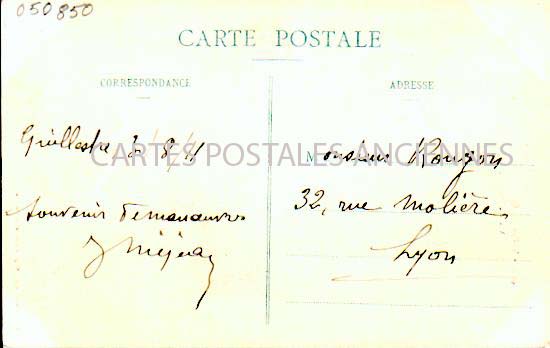 050850
CARTE POSTALE
CORRESPONDANCE
ADRESSE
Guillestre 8 11
CARTES POSTALES ANCIENNES
Monsieur Rougon
32, rue Molière
Souvenir de manœuvres
Lyon